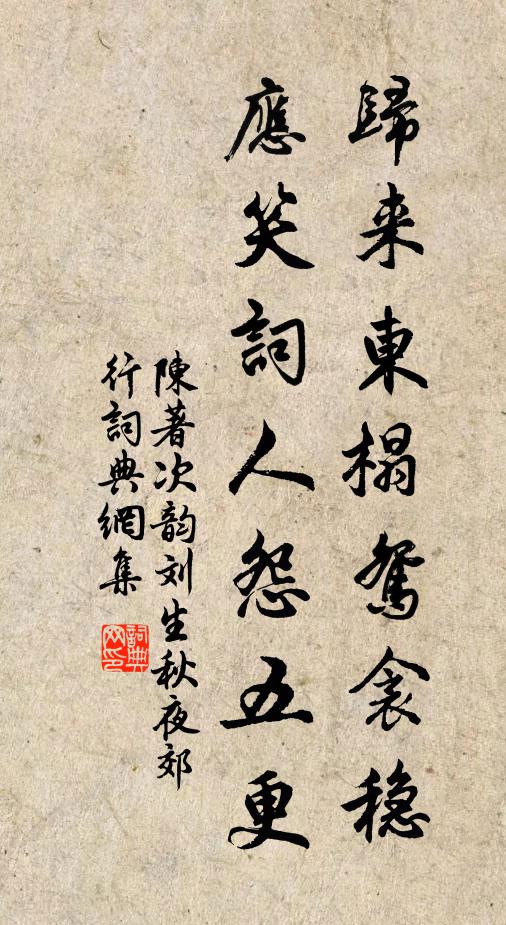 歸来東榻鴛衾穩
應笑詞人怨五更
陳著次韵刘生秋夜郊
行詞典網集
詞典
网印